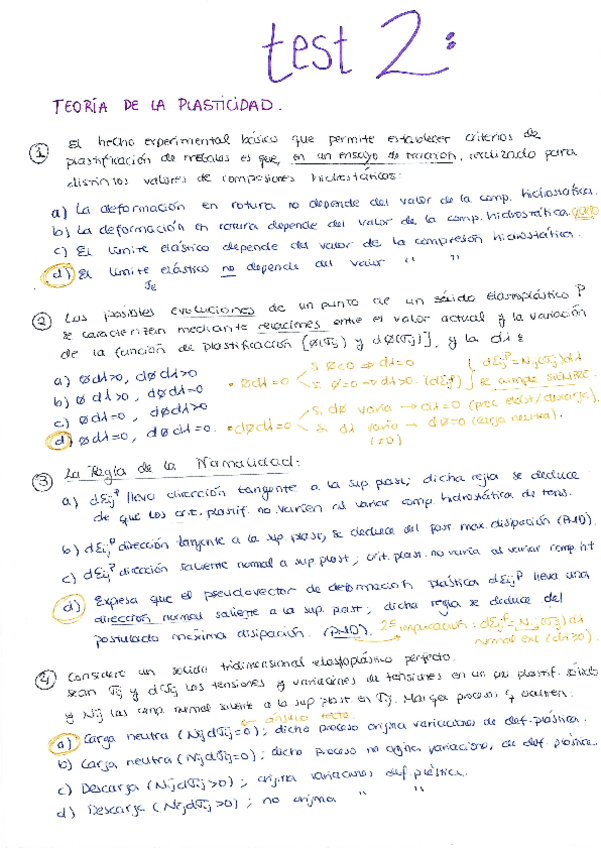 test 2:
TEORÍA DE LA PLASTICIDAD.
① El hecho experimental básico que permite establecer criterios de
plastificación de metales es que, en un ensayo de tracción, realizado para
distintos valores de compresiones hidrostáticas:
a) La deformación en rotura no depende del valor de la comp. hidrostática.
b) La deformación en rotura depende del valor de la comp. hidrostática.
c) El límite elástico depende del valor de la compresión hidrostática.
d) El límite elástico no depende del valor " "
② Las posibles evoluciones de un punto de un sólido elastoplástico P
se caracterizan mediante relaciones entre el valor actual y la variación
de la función de plastificación [Ø(σij) y dØ(σij)], y la dλ:
a) Ødλ>0, dØdλ>0
b) Ødλ>0, dØdλ=0
c) Ødλ=0, dØdλ>0
d) Ødλ=0, dØdλ=0.
• Ødλ=0 < si Ø<0 ⇒ dλ=0
si Ø=0 → dλ>0. (dεijᴾ)
dεijᴾ=Nij(σij)dλ
se cumple SIEMPRE.
• dØdλ=0 < si dØ varía → dλ=0 (proc. elást/descarga).
si dλ varía → dØ=0 (carga neutra).
(≠0)
③ La Regla de la Normalidad:
a) dεijᴾ lleva dirección tangente a la sup plast; dicha regla se deduce
de que los crit. plastif. no varíen al variar comp. hidrostática de tens.
b) dεijᴾ dirección tangente a la sup. plast; se deduce del post. max. disipación (PMD).
c) dεijᴾ dirección saliente normal a sup. plast; crit. plast. no varía al variar comp. ht
d) Expresa que el pseudovector de deformación plástica dεijᴾ lleva una
dirección normal saliente a la sup. plast; dicha regla se deduce del
postulado máxima disipación. (PMD).
2ª implicación: dεijᴾ=Nij(σij)dλ
normal ext (dλ≥0).
④ Considere un sólido tridimensional elastoplástico perfecto.
Sean σij y dσij las tensiones y variaciones de tensiones en un pto. plastif. sólido
y Nij las comp. normal saliente a la sup plast en σij. Marque proceso q ocurren:
← ángulo recto
a) Carga neutra (Nijdσij=0); dicho proceso origina variaciones de def. plástica.
b) Carga neutra (Nijdσij=0); dicho proceso no origina variaciones de def. plástica.
c) Descarga (Nijdσij>0); origina variaciones def. plástica.
d) Descarga (Nijdσij>0); no origina " "